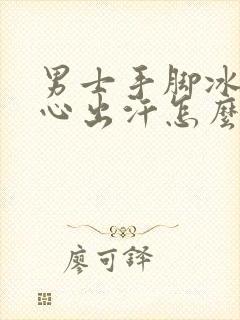 男士手脚冰
心出汗怎麼
廖可铎